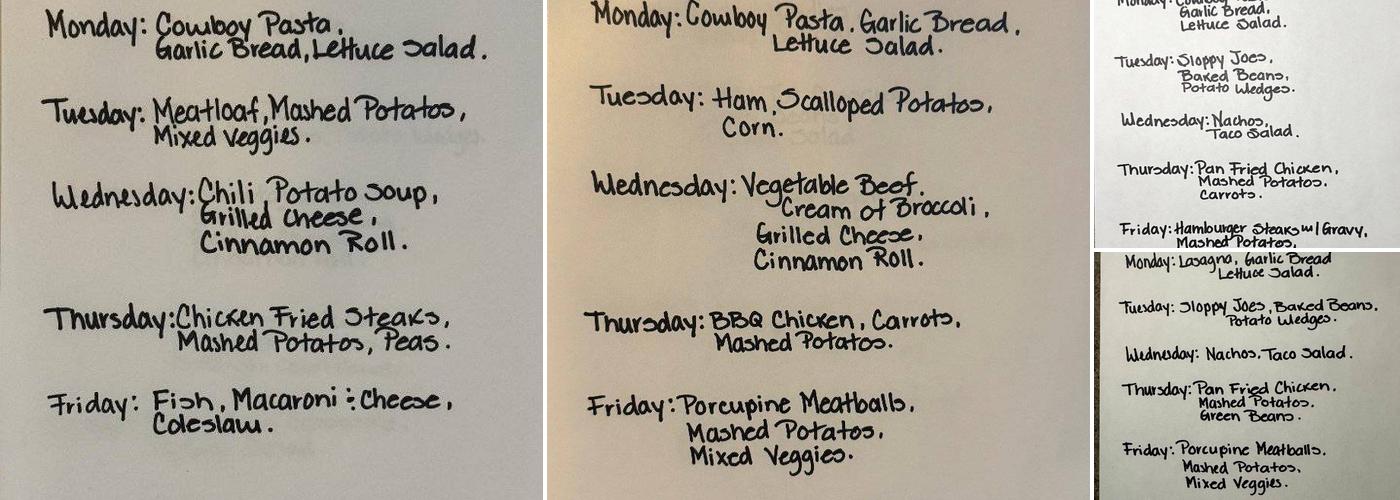 Monday: Cowboy Pasta,
Garlic Bread, Lettuce Salad.
Tuesday: Meatloaf, Mashed Potatos,
Mixed Veggies.
Wednesday: Chili, Potato Soup,
Grilled Cheese,
Cinnamon Roll.
Thursday: Chicken Fried Steaks,
Mashed Potatos, Peas.
Friday: Fish, Macaroni & Cheese,
Coleslaw.
Monday: Cowboy Pasta. Garlic Bread,
Lettuce Salad.
Tuesday: Ham, Scalloped Potatos,
Corn.
Wednesday: Vegetable Beef.
Cream of Broccoli,
Grilled Cheese,
Cinnamon Roll.
Thursday: BBQ Chicken, Carrots,
Mashed Potatos.
Friday: Porcupine Meatballs,
Mashed Potatos,
Mixed Veggies.
Monday: Cowboy
Garlic Bread,
Lettuce Salad.
Tuesday: Sloppy Joes,
Baked Beans,
Potato Wedges.
Wednesday: Nachos,
Taco Salad.
Thursday: Pan Fried Chicken,
Mashed Potatos,
Carrots.
Friday: Hamburger Steaks w/ Gravy,
Mashed Potatos,
Monday: Lasagna, Garlic Bread
Lettuce Salad.
Tuesday: Sloppy Joes, Baked Beans,
Potato Wedges.
Wednesday: Nachos, Taco Salad.
Thursday: Pan Fried Chicken,
Mashed Potatos,
Green Beans.
Friday: Porcupine Meatballs,
Mashed Potatos,
Mixed Veggies.